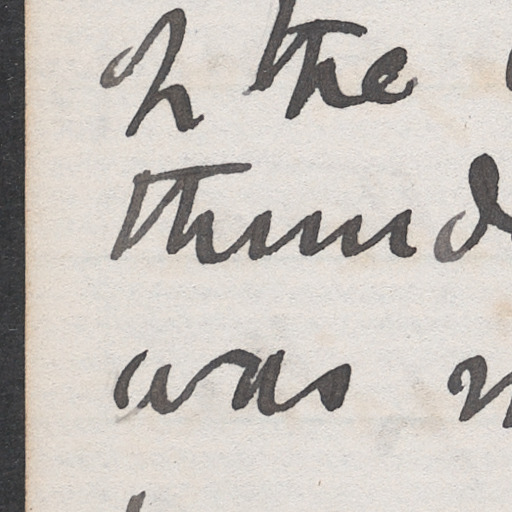 of the
thund
was